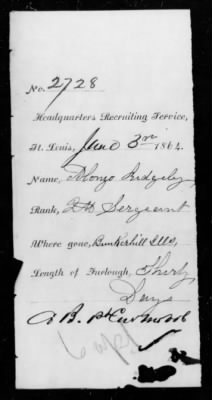 No. 2728
Headquarters Recruiting Service,
St. Louis, June 3rd 1864.
Name, Alonzo Ridgeley
Rank, Sergeant
Where gone, Bunkerhill Ills,
Length of Furlough, Thirty
Days